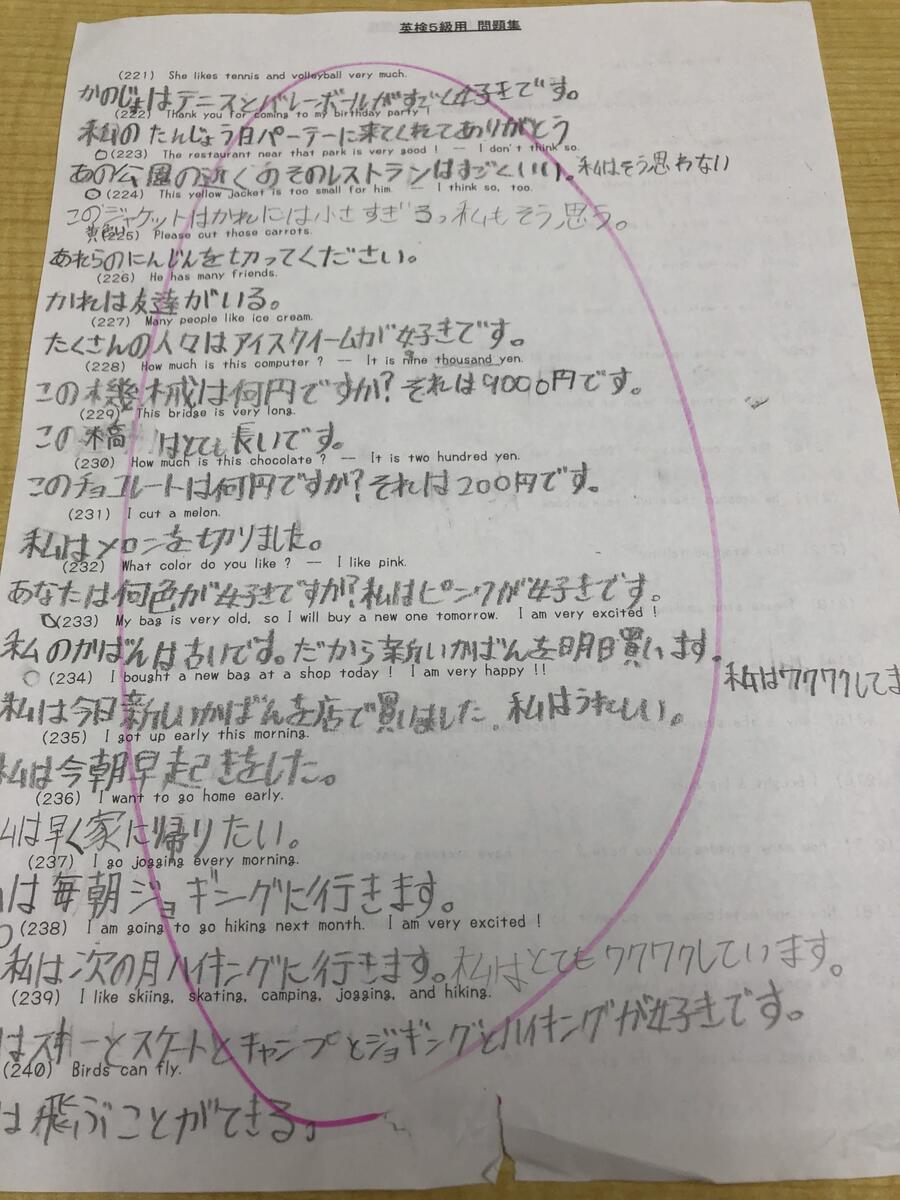 英検5級用 問題集
(221) She likes tennis and volleyball very much.
かのじょはテニスとバレーボールがすごく好きです。
(222) Thank you for coming to my birthday party !
私のたんじょう日パーテーに来てくれてありがとう
(223) The restaurant near that park is very good ! ― I don't think so.
あの公園の近くのそのレストランはすごくいい。私はそう思わない
(224) This yellow jacket is too small for him. ― I think so, too.
このジャケットはかれには小さすぎる。私もそう思う。
黄色い
(225) Please cut those carrots.
あれらのにんじんを切ってください。
(226) He has many friends.
かれは友達がいる。
(227) Many people like ice cream.
たくさんの人々はアイスクイームが好きです。
(228) How much is this computer ? ― It is nine thousand yen.
この機械は何円ですか?それは9000円です。
(229) This bridge is very long.
この橋はとても長いです。
(230) How much is this chocolate ? ― It is two hundred yen.
このチョコレートは何円ですか?それは200円です。
(231) I cut a melon.
私はメロンを切りました。
(232) What color do you like ? ― I like pink.
あなたは何色が好きですか?私はピンクが好きです。
(233) My bag is very old, so I will buy a new one tomorrow. I am very excited !
私のかばんは古いです。だから新しいかばんを明日買います。
私はワクワクしてま
(234) I bought a new bag at a shop today ! I am very happy !!
私は今日新しいかばんを店で買いました。私はうれしい。
(235) I got up early this morning.
私は今朝早起きをした。
(236) I want to go home early.
ムは早く家に帰りたい。
(237) I go jogging every morning.
は毎朝ジョギングに行きます。
(238) I am going to go hiking next month. I am very excited !
私は次の月ハイキングに行きます。私はとてもワクワクしています。
(239) I like skiing, skating, camping, jogging, and hiking.
はスキーとスケートとキャンプとジョギングとハイキングが好きです。
(240) Birds can fly.
は飛ぶことができる。